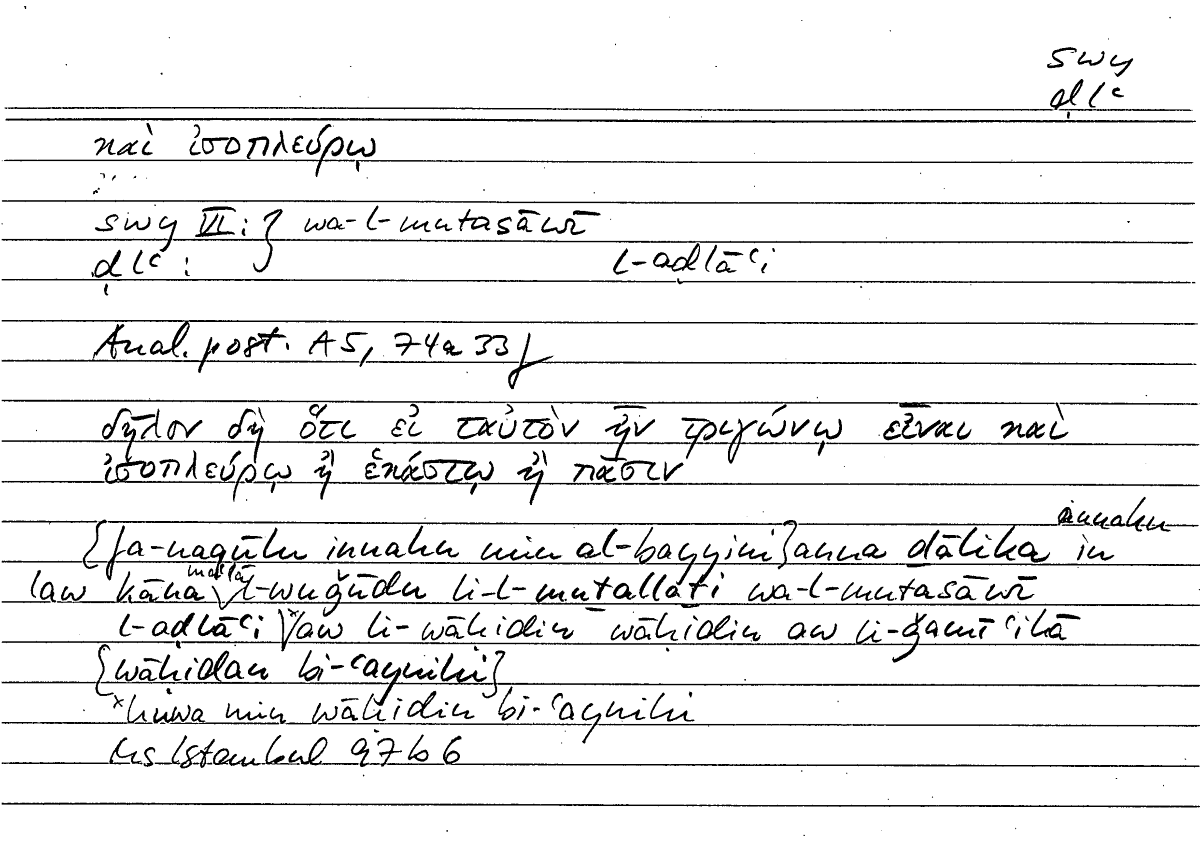 swy
ḍlʿ
καὶ ἰσοπλεύρῳ
swy VI: } wa-l-mutasāwī
ḍlʿ : l-aḍlāʿi
Anal. post. A5, 74a 33f
δῆλον δὴ ὅτι εἰ ταὐτὸν ἦν τριγώνῳ εἶναι καὶ
ἰσοπλεύρῳ ἢ ἑκάστῳ ἢ πᾶσιν
innahu
{fa-naqūlu innahu min al-bayyini} anna ḏālika in
law kāna l-wuǧūdu li-l-muṯallaṯi wa-l-mutasāwī
l-aḍlāʿi ˣ/aw li-wāḥidin wāḥidin aw li-ǧamīʿihā
{wāḥidan bi-ʿaynihi}
ˣhuwa min wāḥidin bi-ʿaynihi
Ms Istanbul 97b6